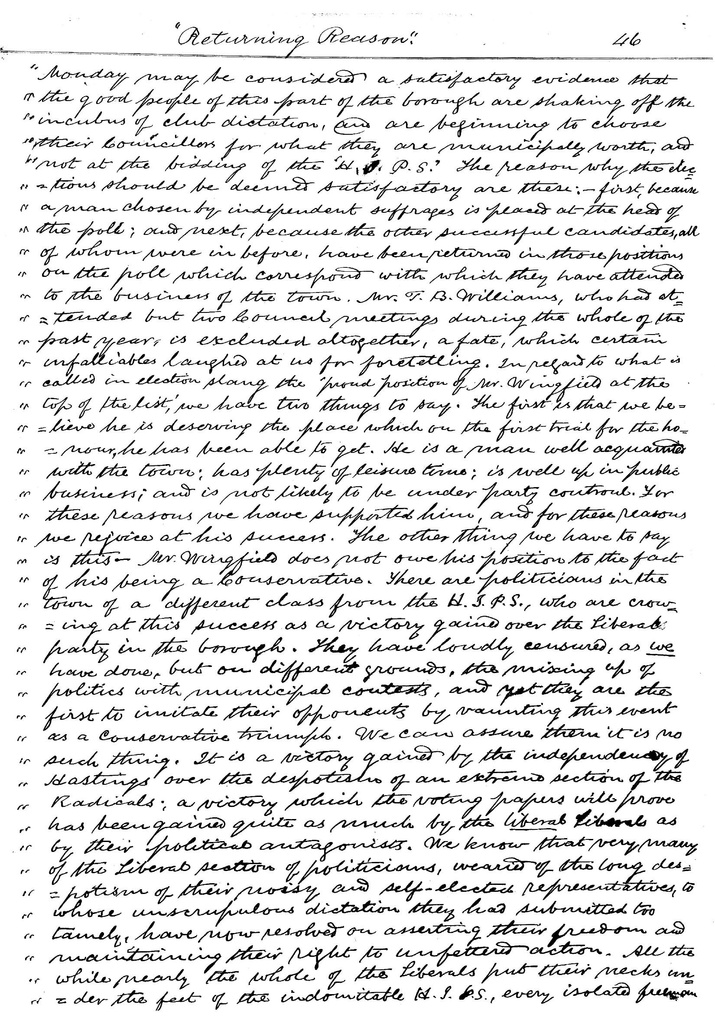 "Returning Reason". 46
"Monday may be considered a satisfactory evidence that
" the good people of this part of the borough are shaking off the
" incubus of club dictation, and are beginning to choose
" their Councillors for what they are municipally worth, and
" not at the bidding of the 'H. I. P. S.' The reason why the elec-
" =tions should be deemed satisfactory are these:– first, because
" a man chosen by independent suffrages is placed at the head of
" the poll; and next, because the other successful candidates, all
" of whom were in before, have been returned in those positions
" on the poll which correspond with which they have attended
" to the business of the town. Mr. T. B. Williams, who had at-
" =tended but two Council meetings during the whole of the
" past year, is excluded altogether, a fate, which certain
" infalliables laughed at us for foretelling. In regard to what is
" called in election slang the 'proud position of Mr. Wingfield at the
" top of the list,' we have two things to say. The first is that we be-
" =lieve he is deserving the place which on the first trial for the ho-
" =nour, he has been able to get. He is a man well acquainted
" with the town; has plenty of leisure time; is well up in public
" business; and is not likely to be under party controul. For
" these reasons we have supported him, and for these reasons
" we rejoice at his success. The other thing we have to say
" is this– Mr. Wingfield does not owe his position to the fact
" of his being a Conservative. There are politicians in the
" town of a different class from the H.I.P.S., who are crow-
" =ing at this success as a victory gained over the Liberal
" party in the borough. They have loudly censured, as we
" have done, but on different grounds, the mixing up of
" politics with municipal contests, and yet they are the
" first to imitate their opponents by vaunting this event
" as a Conservative triumph. We can assure them it is no
" such thing. It is a victory gained by the independency of
" Hastings over the despotism of an extreme section of the
" Radicals; a victory which the voting papers will prove
" has been gained quite as much by the liberal Liberals as
" by their political antagonists. We know that very many
" of the Liberal section of politicians, wearied of the long des-
" =potism of their noisy and self-elected representatives, to
" whose unscrupulous dictation they had submitted too
" tamely, have now resolved on asserting their freedom and
" maintaining their right to unfettered action. All the
" while nearly the whole of the Liberals put their necks un-
" =der the feet of the indomitable H.I.P.S., every isolated freeman